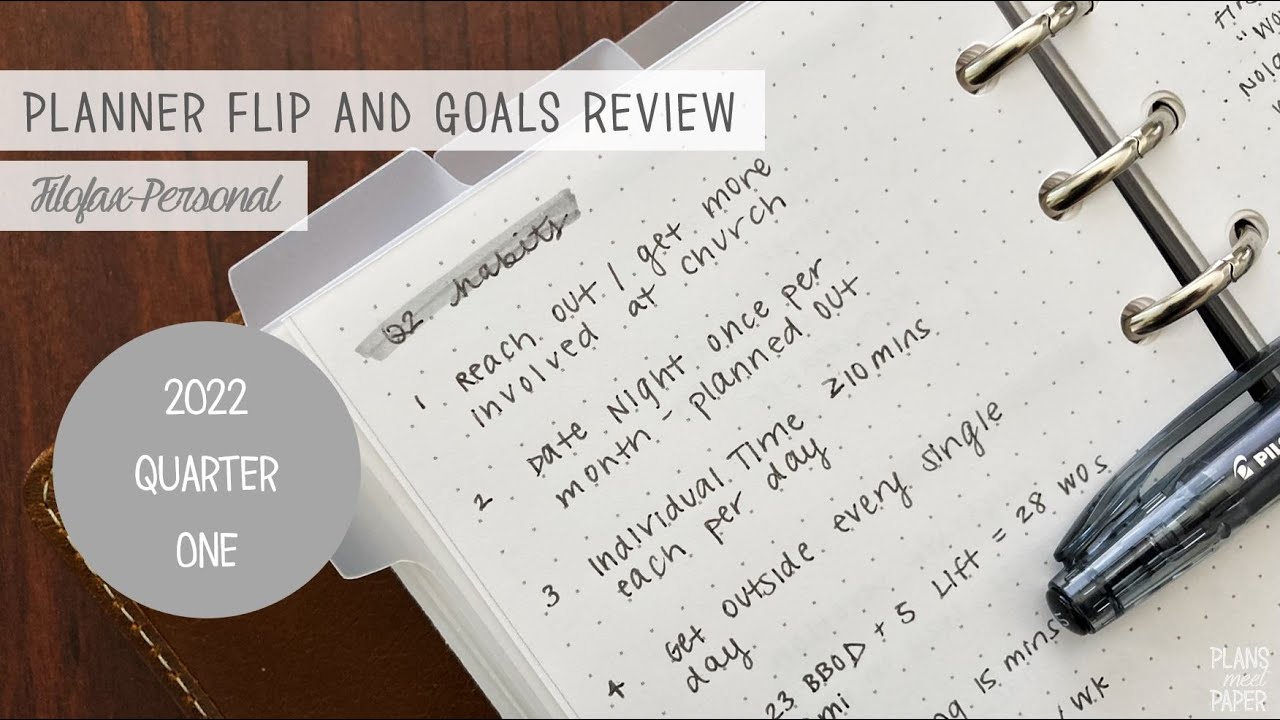 PLANNER FLIP AND GOALS REVIEW
Filofax-Personal
2022
QUARTER
ONE
Q2 habits
1 Reach out / get more
involved at church
2 Date Night once per
month - planned out
3 Individual Time ≥10 mins
each per day
4 Get outside every single
day
23 BBOD + 5 Lift = 28 WOs
mi
15 mins
WK
PLANS
meet
PAPER